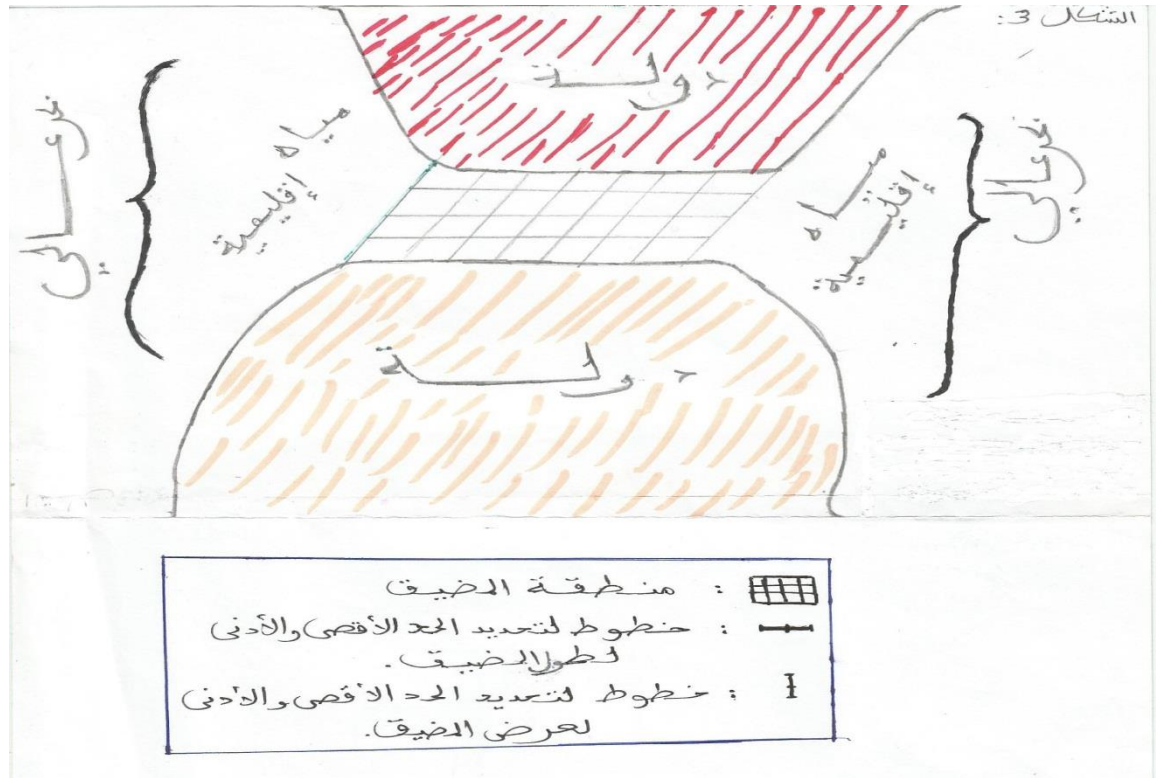 الشكل 3:
دولة
بحر عالي
مياه
إقليمية
مياه إقليمية
بحر عالي
دولة
: منطقة المضيق
: خطوط لتحديد الحد الأقصى والأدنى
لطول المضيق.
: خطوط لتحديد الحد الأقصى والأدنى
لعرض المضيق.